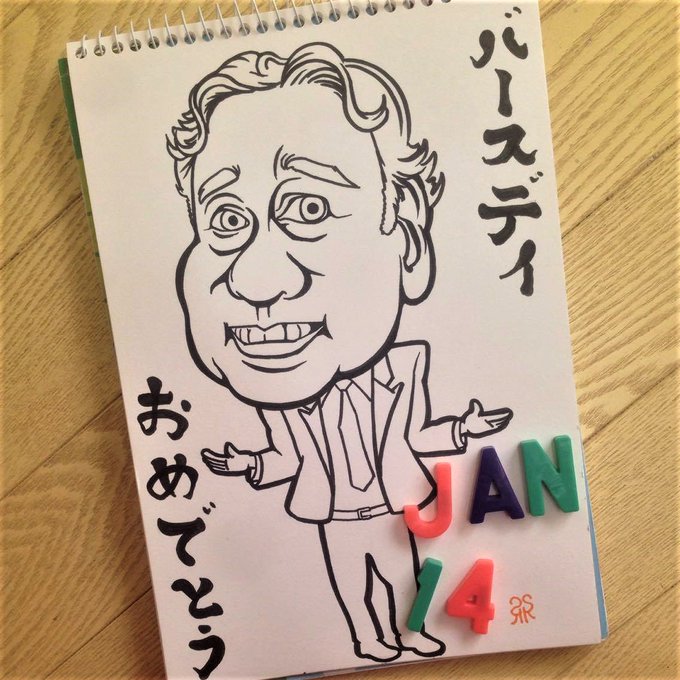 バースディ
おめでとう
JAN
14